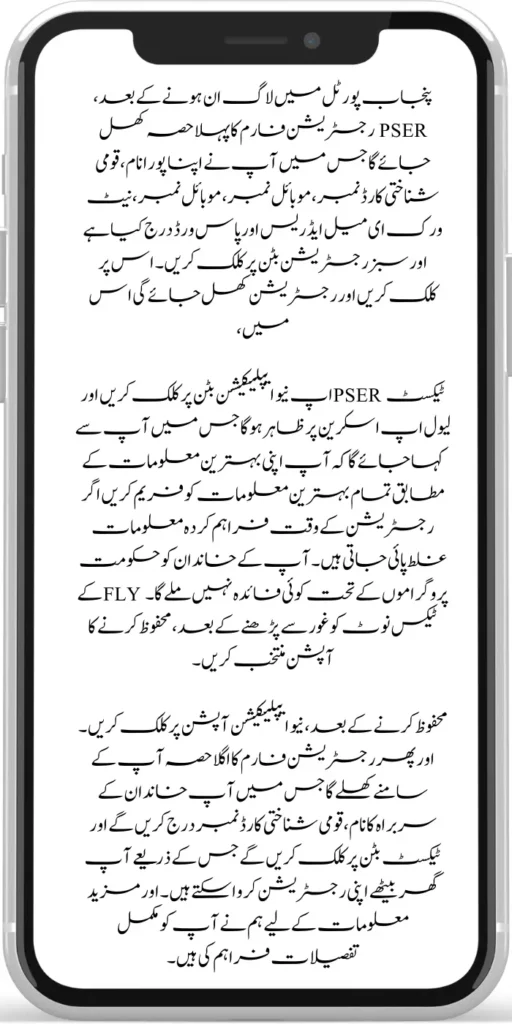 پنجاب پورٹل میں لاگ ان ہونے کے بعد،
PSER رجسٹریشن فارم کا پہلا حصہ کھل
جائے گا جس میں آپ نے اپنا پورا نام، قومی
شناختی کارڈ نمبر، موبائل نمبر، موبائل نمبر، نیٹ
ورک ای میل ایڈریس اور پاس ورڈ درج کیا ہے
اور سبز رجسٹریشن بٹن پر کلک کریں۔ اس پر
کلک کریں اور رجسٹریشن کھل جائے گی اس
میں،
ٹیکسٹ PSERاپ نیو ایپلیکیشن بٹن پر کلک کریں اور
لیول اپ اسکرین پر ظاہر ہوگا جس میں آپ سے
کہا جائے گا کہ آپ اپنی بہترین معلومات کے
مطابق تمام بہترین معلومات کو فریم کریں اگر
رجسٹریشن کے وقت فراہم کردہ معلومات
غلط پائی جاتی ہیں۔ آپ کے خاندان کو حکومت
پروگراموں کے تحت کوئی فائدہ نہیں ملے گا۔ FLYکے
ٹیکس نوٹ کو غور سے پڑھنے کے بعد، محفوظ کرنے کا
آپشن منتخب کریں۔
محفوظ کرنے کے بعد، نیو ایپلیکیشن آپشن پر کلک کریں۔
اور پھر رجسٹریشن فارم کا اگلا حصہ آپ کے
سامنے کھلے گا جس میں آپ خاندان کے
سربراہ کا نام، قومی شناختی کارڈ نمبر درج کریں گے اور
ٹیکسٹ بٹن پر کلک کریں گے جس کے ذریعے آپ
گھر بیٹھے اپنی رجسٹریشن کروا سکتے ہیں۔ اور مزید
معلومات کے لیے ہم نے آپ کو مکمل
تفصیلات فراہم کی ہیں۔